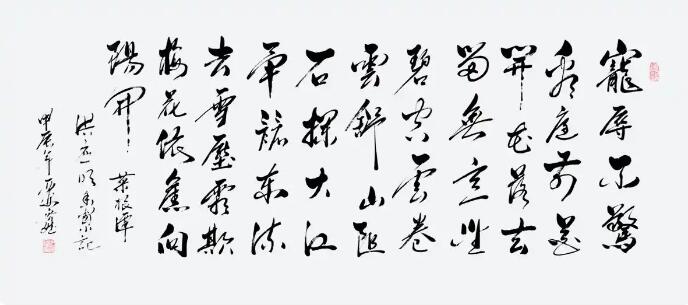 寵辱不驚
看庭前花
開花落去
留無意
碧空雲卷
雲舒山阻
石攔大江
畢竟东流
去雪壓霜欺
梅花依舊向
陽開
菜根譚
洪应明
甲辰年